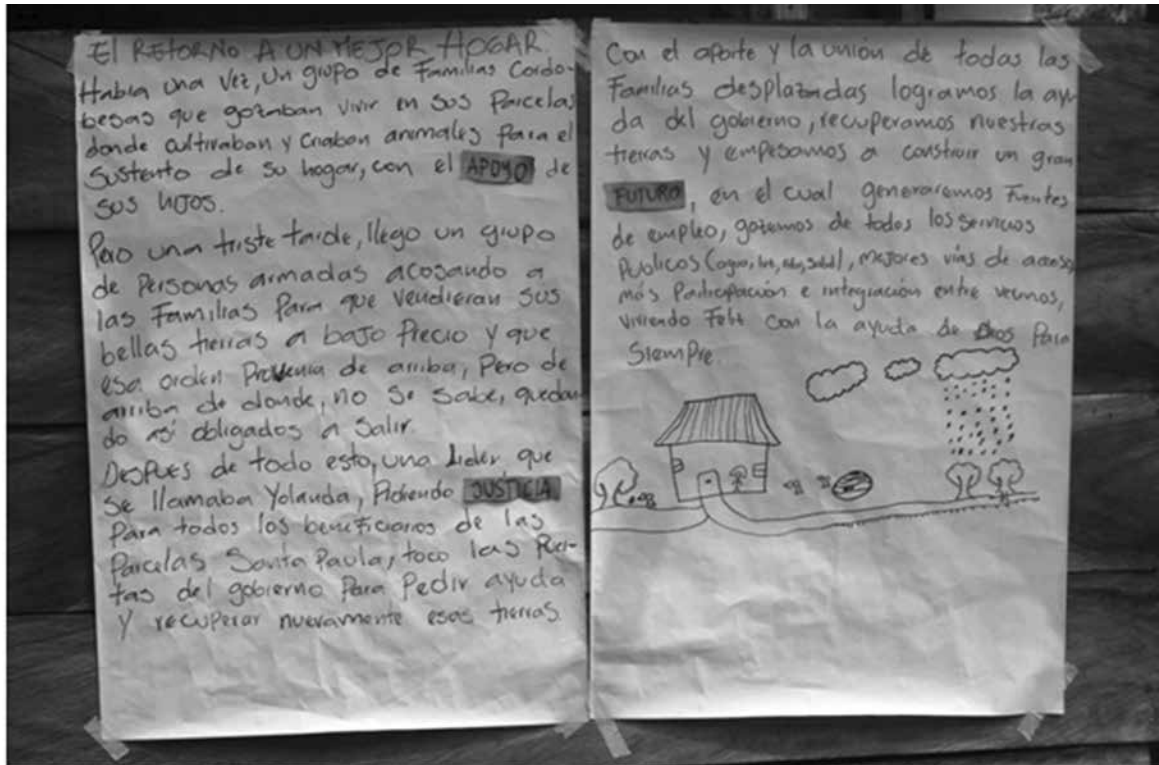 El RETORNO A UN MEJOR HOGAR.
Habia una vez, un grupo de Familias Cordo-
besas que gozaban vivir en sus Parcelas
donde cultivaban y criaban animales Para el
sustento de su hogar, con el APOYO de
sus hijos.
Pero una triste tarde, llego un grupo
de Personas armadas acosando a
las Familias Para que vendieran sus
bellas tierras a bajo Precio y que
esa orden Provenia de arriba, Pero de
arriba de donde, no se sabe, quedan-
do así obligados a Salir.
DesPues de todo esto, una Lider que
se llamaba Yolanda, Pidiendo JUSTICIA
Para todos los beneficiarios de las
Parcelas Santa Paula, toco las Puer-
tas del gobierno Para Pedir ayuda
y recuperar nuevamente esas tierras.
Con el aporte y la unión de todas las
Familias desplazadas logramos la ayu-
da del gobierno, recuperamos nuestras
tierras y empesamos a construir un gran
FUTURO, en el cual generaremos Fuentes
de empleo, gozemos de todos los servicios
Publicos (agua, luz, Salud), mejores vías de acceso,
más Participación e integración entre vecinos,
viviendo Feliz con la ayuda de Dios Para
SiemPre.